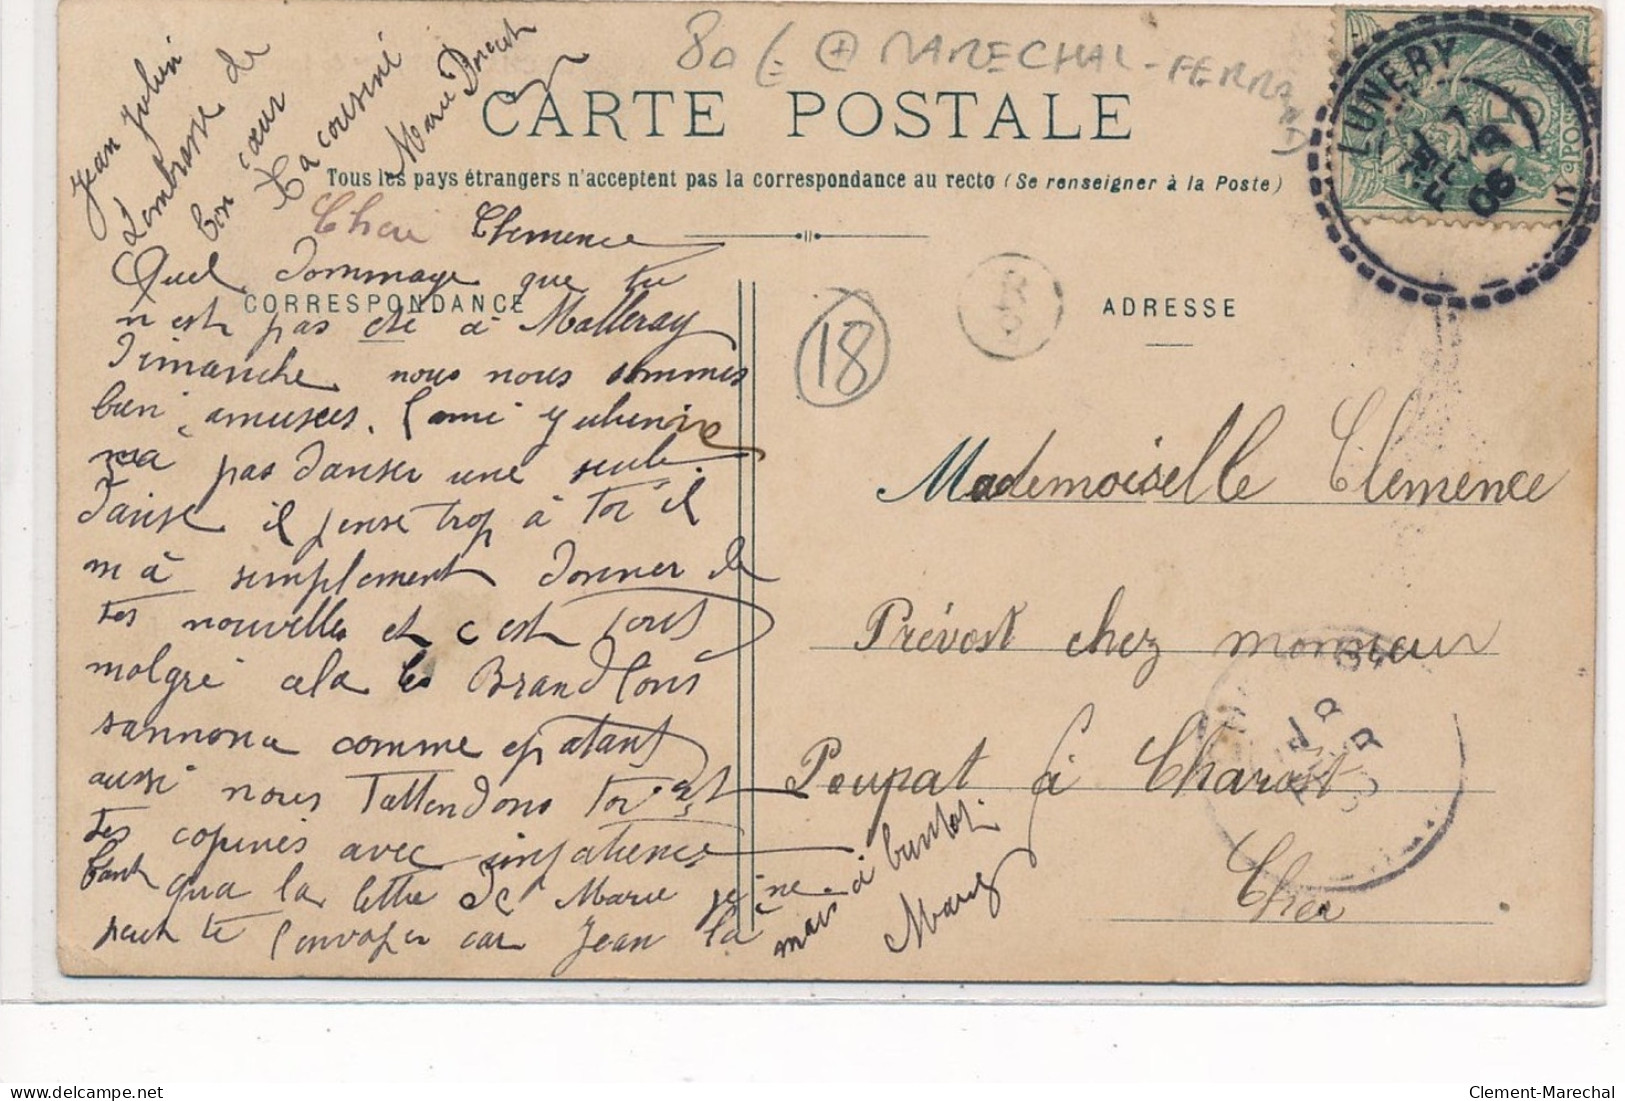 80 € + MARECHAL - FERRAND
CARTE POSTALE
Tous les pays étrangers n'acceptent pas la correspondance au recto (Se renseigner à la Poste)
LUNERY
08
POSTES
Jean Julien
L'embrasse de
bon cœur
Ta cousine
Marie
CORRESPONDANCE
ADRESSE
18
Chere Clemence
Quel dommage que tu
n'est pas été à Malleray
Dimanche nous nous sommes
bien amusees. L'ami
pas danser une seule
danse il pense trop à toi il
m'à simplement donner de
tes nouvelles et c'est tout
malgré cela les Brandlons
sannona comme epatant
aussi nous T'attendons toi et
tes copines avec inpatience
tant qua la lettre de Marie je ne
peut te l'envoyer car Jean là
mais à bientot.
Marie
Mademoiselle Clemence
Prévost chez monsieur
Poupat à Charost
Cher
Clement-Marechal